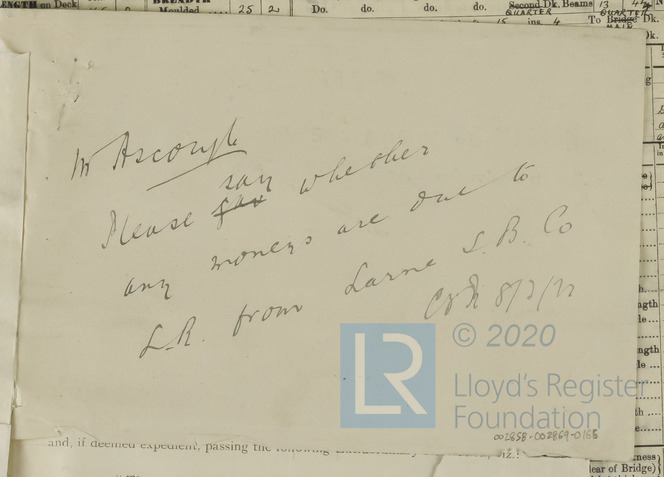 ENGTH on Deck
BREADTH
Moulded 25 2
Do. do. do. do.
Second Dk. Beams 13
QUARTER
To Bridge Dk.
Mr Ascough
Please say whether
any moneys are due to
L.R. from Larne S. B. Co
8/2/22
LR
© 2020
Lloyd's Register
Foundation
002858-002869-0165
and, if deemed expedient, passing the following
lear of Bridge)